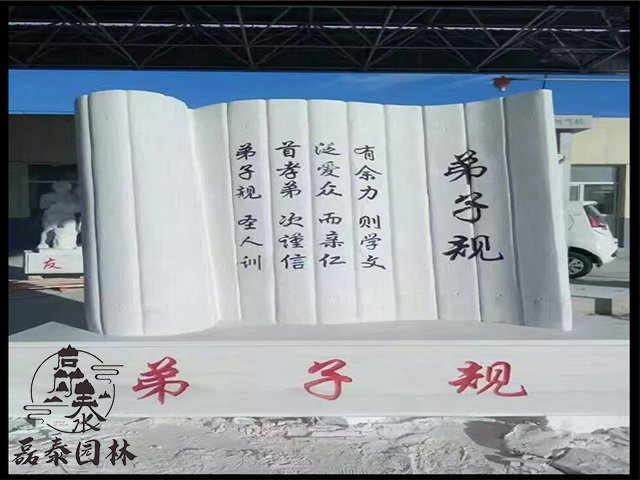 弟子规
弟子规 圣人训
首孝弟 次谨信
泛爱众 而亲仁
有余力 则学文
弟子规
友
磊泰园林